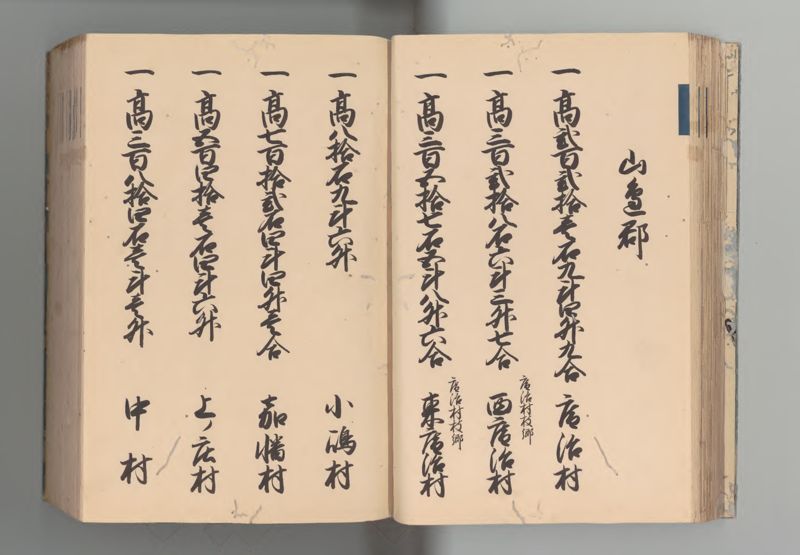 山邊郡
一 高弐百弐拾壱石九斗四升九合 庵治村
庵治村枝郷
一 高三百弐拾八石六斗三升七合 西庵治村
庵治村枝郷
一 高三百五拾七石五斗八升六合 東庵治村
一 高八拾石九斗六升 小嶋村
一 高七百拾弐石四斗四升壱合 嘉幡村
一 高五百四拾壱石四斗六升 上ノ庄村
一 高三百八拾四石壱斗壱升 中村